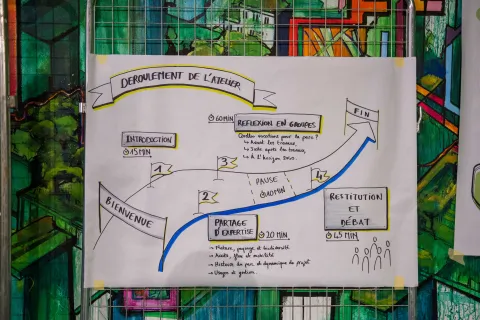 DEROULEMENT DE L'ATELIER
BIENVENUE
INTRODUCTION
15 MIN
1
2
PARTAGE
D'EXPERTISE
20 MIN
→ Nature, paysage et biodiversité
→ Accès, flux et mobilité
→ Histoire du parc et dynamique du projet
→ Usages et gestion.
3
60MIN
REFLEXION EN GROUPES
Quelles vocations pour le parc ?
→ Avant les travaux,
→ Juste après les travaux,
→ A l'horizon 2050.
PAUSE
10MIN
4
RESTITUTION
ET
DÉBAT
45 MIN
FIN